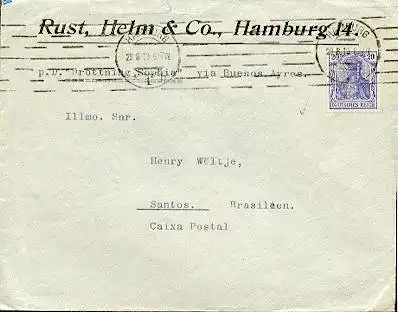 Rust, Helm & Co., Hamburg 14.
HAMBURG
p.D."Drottning Sophia" via Buenos Ayres.
20 20
DEUTSCHES REICH
Illmo. Snr.
Henry Wöltje,
Santos. Brasilien.
Caixa Postal